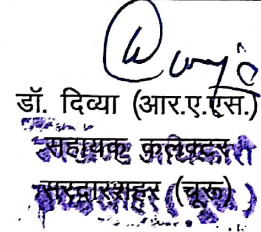 डॉ. दिव्या (आर.ए.एस.)
सहायक कलेक्टर
सरदारशहर (चूरू)